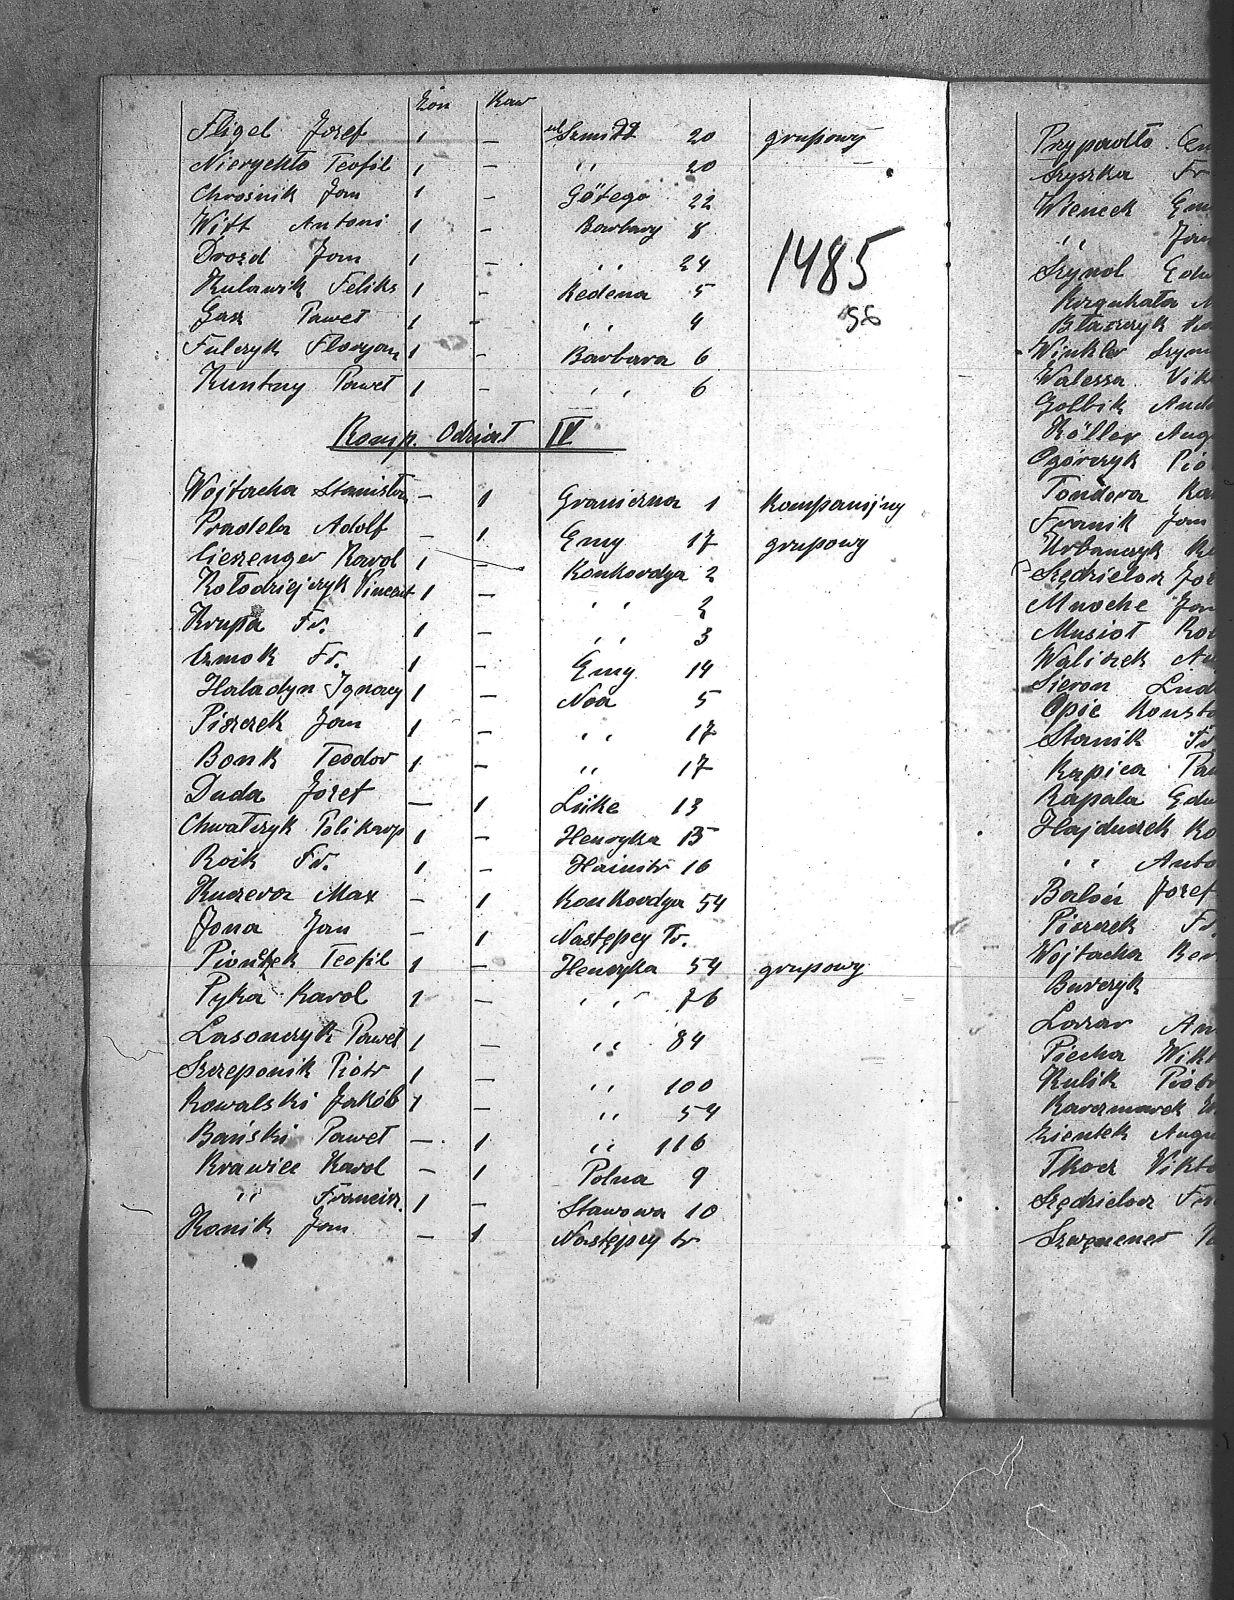 Żon Kaw
Fligel Jozef 1 – ul Szmidt 20 grupowy
Nierychło Teofil 1 – ,, 20 –
Chrośnik Jan 1 – Götego 22
Witt Antoni 1 – Barbary 8
Drozd Jan 1 – ,, 24
Kulawik Feliks 1 – Redena 5
Gasz Paweł 1 – ,, 4
Fulczyk Floryan 1 – Barbara 6
Kuntny Paweł 1 – ,, 6
1485
56
Komp. Odział IV
Wojtacha Stanisła – 1 Graniczna 1 Kompanijny
Pradela Adolf – 1 Emy 17 grupowy
Cieszenger Karol 1 – Konkordya 2
Kołodziejczyk Vincent 1 – ,, 2
Krupa Fr. 1 – ,, 3
Czmok Fr. 1 – Emy 14
Haladyn Ignacy 1 – Noa 5
Piszczek Jan 1 – ,, 17
Bonk Teodor 1 – ,, 17
Duda Jozef – 1 Lüke 13
Chwałczyk Polikarp 1 – Henryka 15
Roik Fr. 1 – Hainitz 16
Kuczera Max – 1 Konkordya 54
Jona Jan – 1 Następcy Tr.
Piontek Teofil 1 – Henryka 54 grupowy
Pyka Karol 1 – ,, 76
Lasonczyk Paweł 1 – ,, 84
Szczeponik Piotr 1 – ,, 100
Kowalski Jakób 1 – ,, 54
Bański Paweł – 1 ,, 116
Krawiec Karol – 1 Polna 9
,, Francisz. 1 – Stawowa 10
Konik Jan – 1 Następcy tr
Przypadło
Szyszka Fr
Wiencek
,, Jan
Szynol
Błaszczyk
Winkler Szym
Walessa Vik
Golbik
Köller Aug
Ogórczyk Pio
Tondera Ka
Franik Jan
Urbanczyk
Szędzielorz Joz
Mnoche Jan
Musioł
Waliszek
Sieron Lud
Opic Konst
Stanik Fr
Kapica Pa
Kapala Edw
Hajduczek
,, Anto
Baloń Jozef
Piszczek Fr.
Wojtacha
Burczyk
Lazar An
Piecha Wikt
Kulik Piotr
Kaczmarek
Zientek Augu
Tkocz Vikto
Szędzielorz